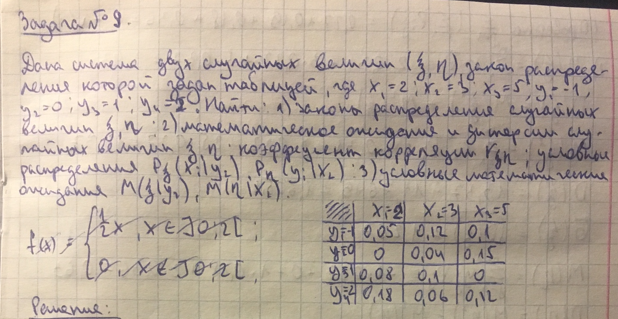 Задача №9.
Дана система двух случайных величин (ξ, η) закон распреде-
ления которой задан таблицей, где x₁=2; x₂=3; x₃=5, y₁=-1;
y₂=0; y₃=1; y₄=2. Найти: 1) законы распределения случайных
величин ξ, η; 2) математическое ожидание и дисперсии слу-
чайных величин ξ, η коэффициент корреляции rξη; условные
распределения Pξ(xᵢ|y₂), Pη(yⱼ|x₂); 3) условные математические
ожидания M(ξ|y₂), M(η|x₂).
f(x) = { ½x, x∈]0,2[;
0, x∉]0,2[,
x₁=2 x₂=3 x₃=5
y=-1 0,05 0,12 0,1
y=0 0 0,04 0,15
y=1 0,08 0,1 0
y=2 0,18 0,06 0,12
Решение: